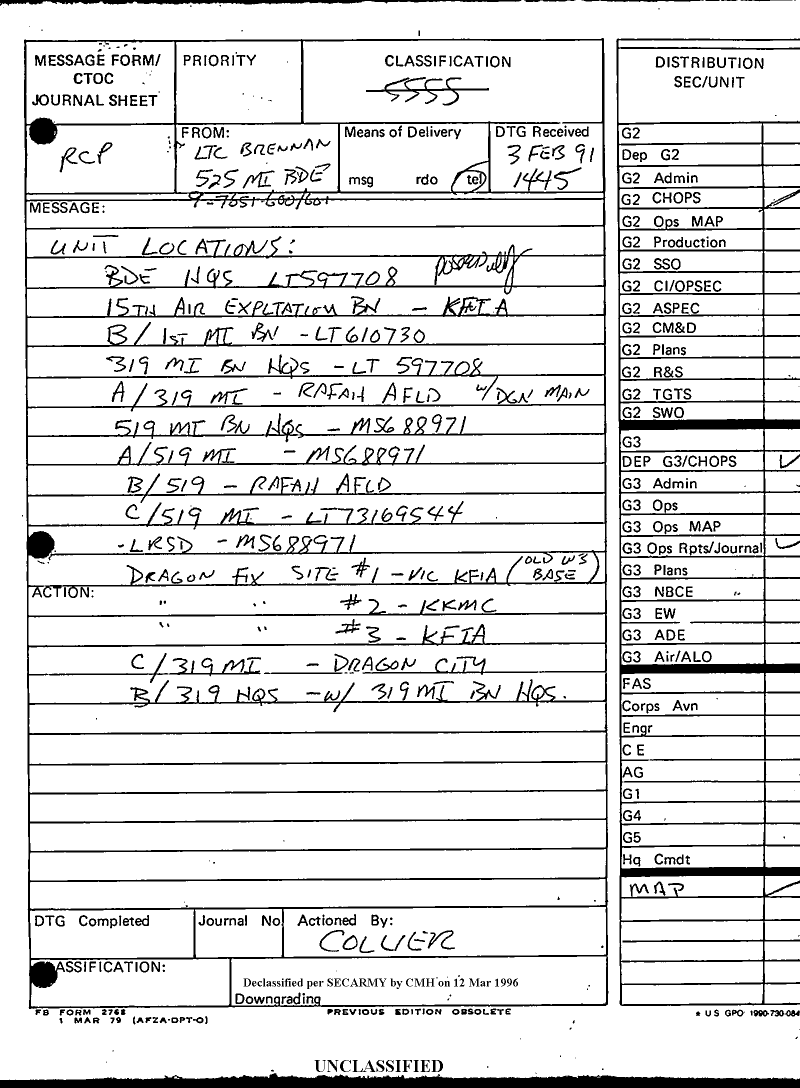 MESSAGE FORM/
CTOC
JOURNAL SHEET
PRIORITY
CLASSIFICATION
SSSS
RCP
FROM:
LTC BRENNAN
525 MI BDE
9-7651-600/601
Means of Delivery
msg rdo tel
DTG Received
3 FEB 91
1445
MESSAGE:
UNIT LOCATIONS:
BDE HQS LT597708
15TH AIR EXPLTATION BN - KFIA
B/1ST MI BN - LT610730
319 MI BN HQS - LT 597708
A/319 MI - RAFAH AFLD W/DGN MAIN
519 MI BN HQS - MS688971
A/519 MI - MS688971
B/519 - RAFAH AFLD
C/519 MI - LT73169544
-LRSD - MS688971
DRAGON FIX SITE #1 - VIC KFIA (OLD W3 BASE)
ACTION:
" " #2 - KKMC
" " #3 - KFIA
C/319 MI - DRAGON CITY
B/319 HQS - W/ 319 MI BN HQS.
DTG Completed
Journal No
Actioned By:
COLLIER
ASSIFICATION:
Declassified per SECARMY by CMH on 12 Mar 1996
Downgrading
FB FORM 2768
1 MAR 79 (AFZA-DPT-O)
PREVIOUS EDITION OBSOLETE
DISTRIBUTION
SEC/UNIT
G2
Dep G2
G2 Admin
G2 CHOPS
G2 Ops MAP
G2 Production
G2 SSO
G2 CI/OPSEC
G2 ASPEC
G2 CM&D
G2 Plans
G2 R&S
G2 TGTS
G2 SWO
G3
DEP G3/CHOPS
G3 Admin
G3 Ops
G3 Ops MAP
G3 Ops Rpts/Journal
G3 Plans
G3 NBCE
G3 EW
G3 ADE
G3 Air/ALO
FAS
Corps Avn
Engr
C E
AG
G1
G4
G5
Hq Cmdt
MAP
* U S GPO 1990-730-084
UNCLASSIFIED